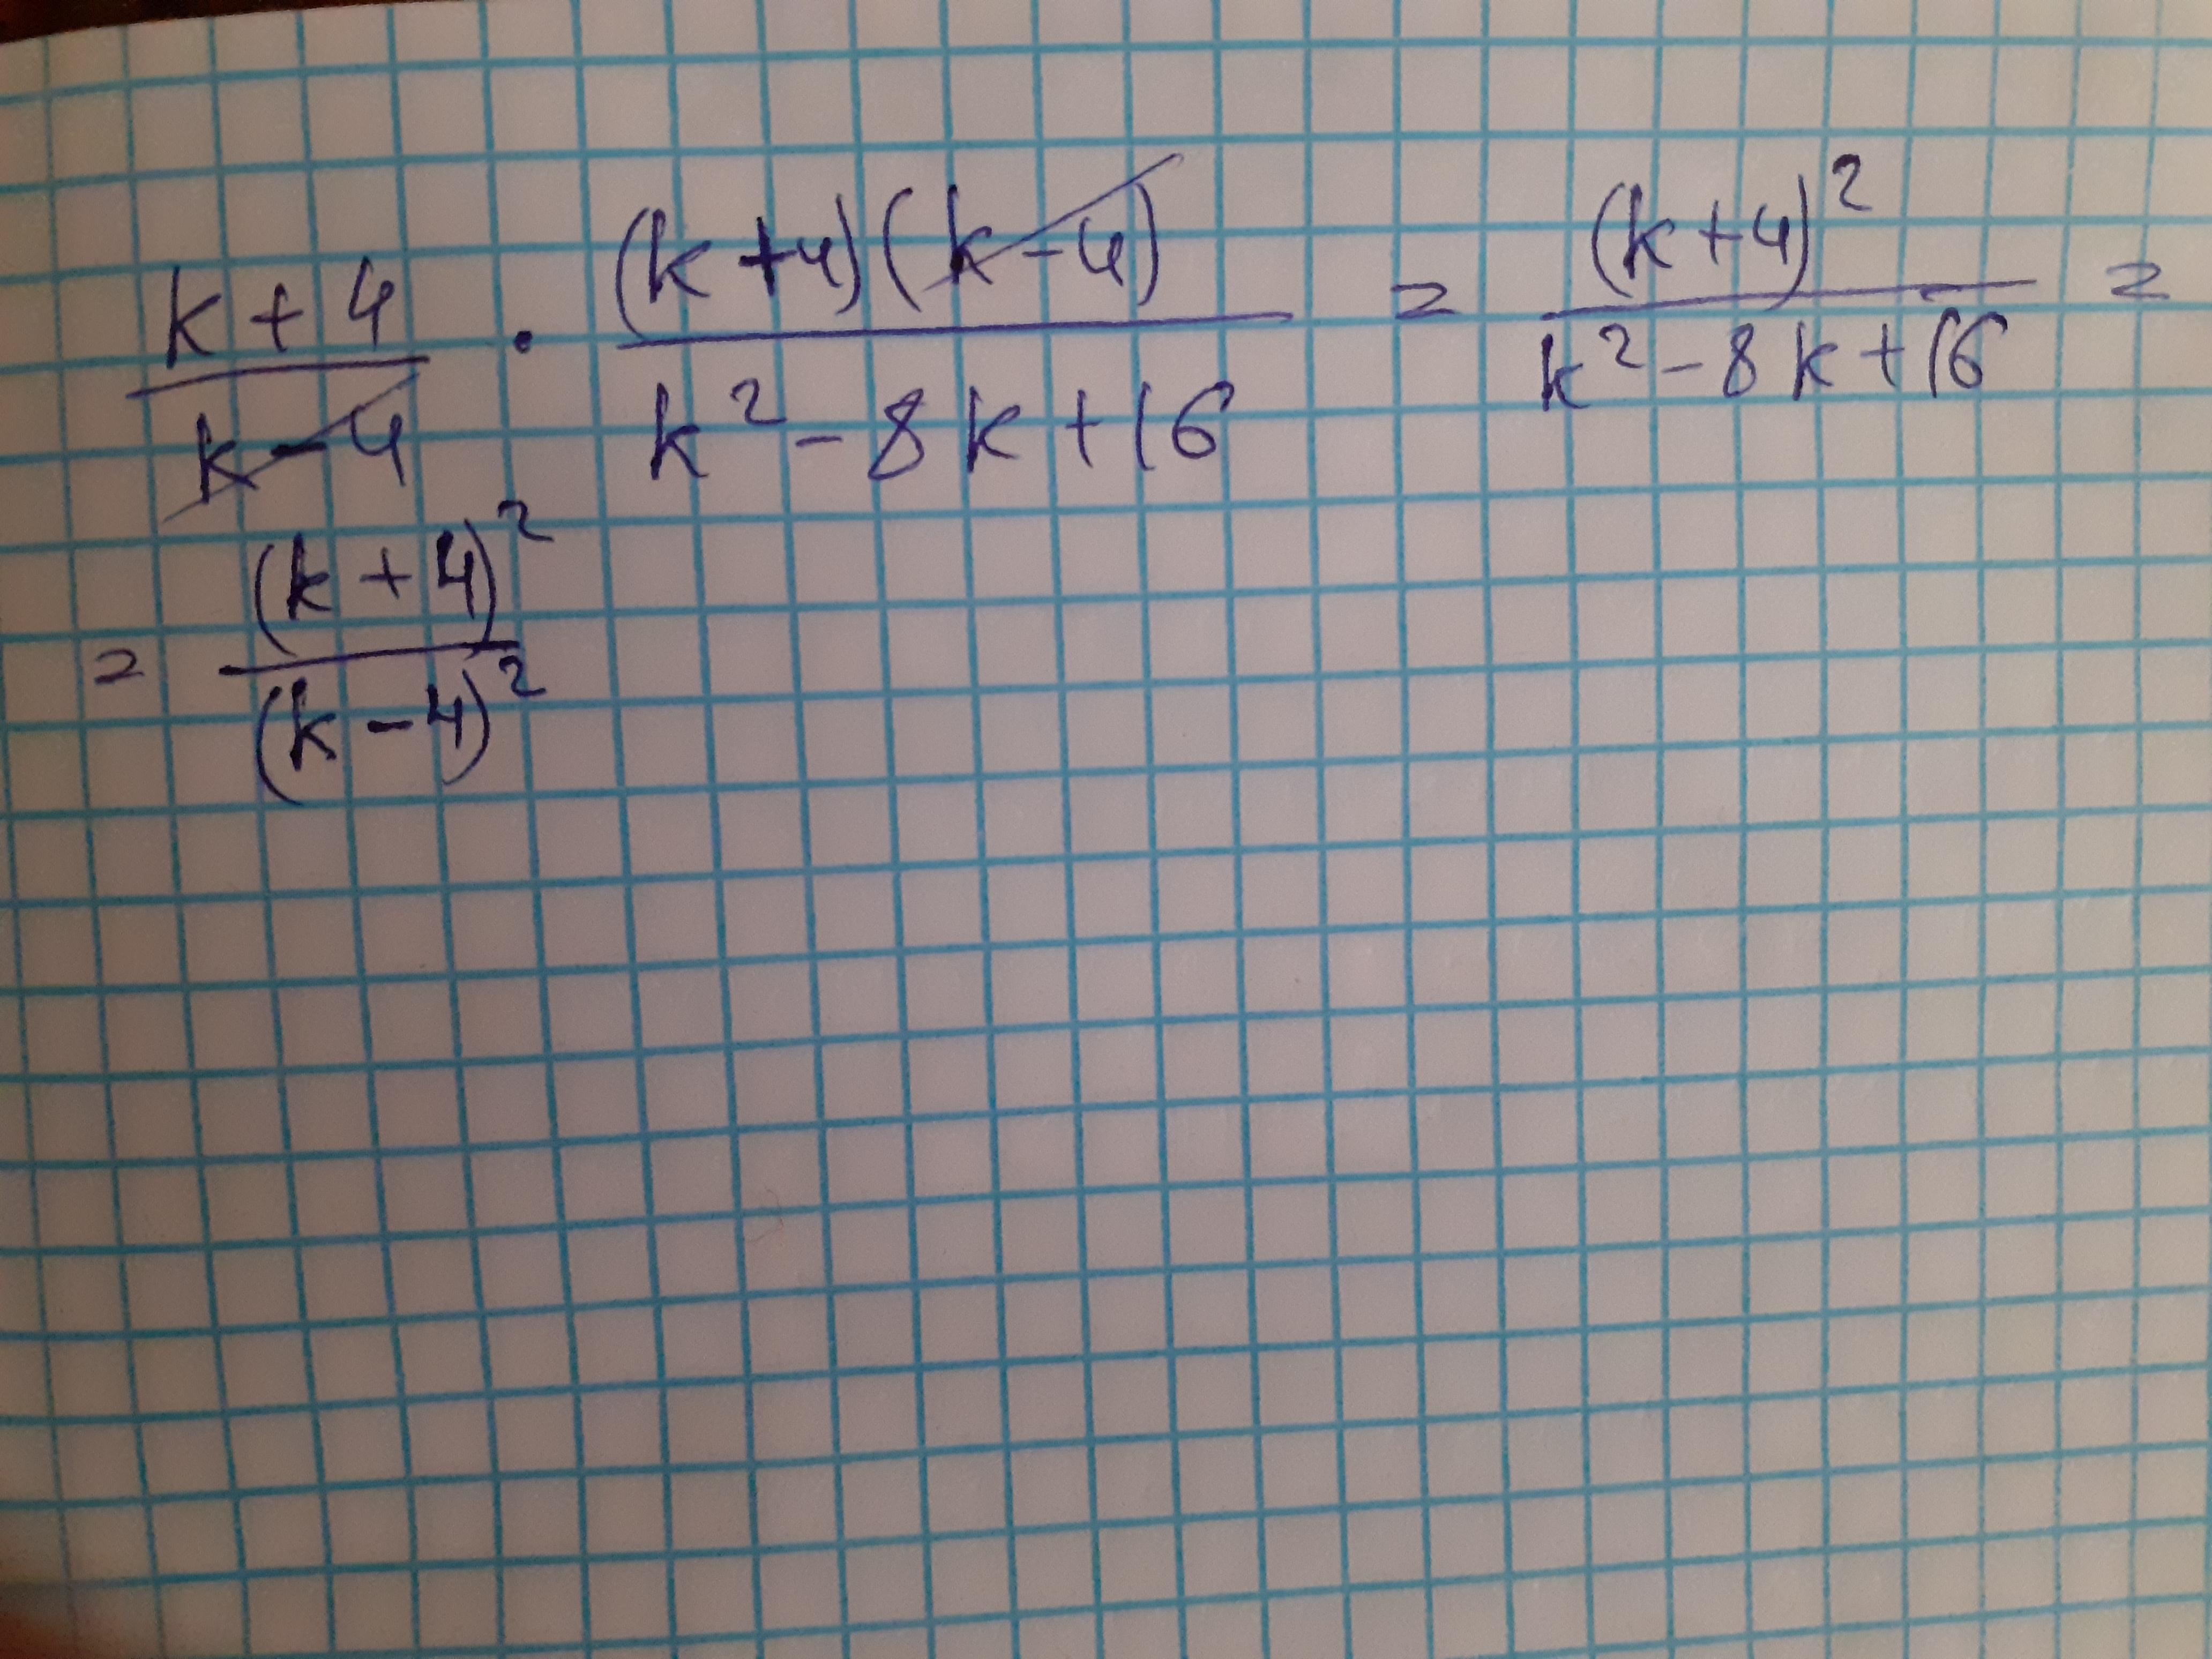 k + 4 / k - 4 · (k + 4)(k - 4) / k² - 8k + 16 = (k + 4)² / k² - 8k + 16 =
= (k + 4)² / (k - 4)²